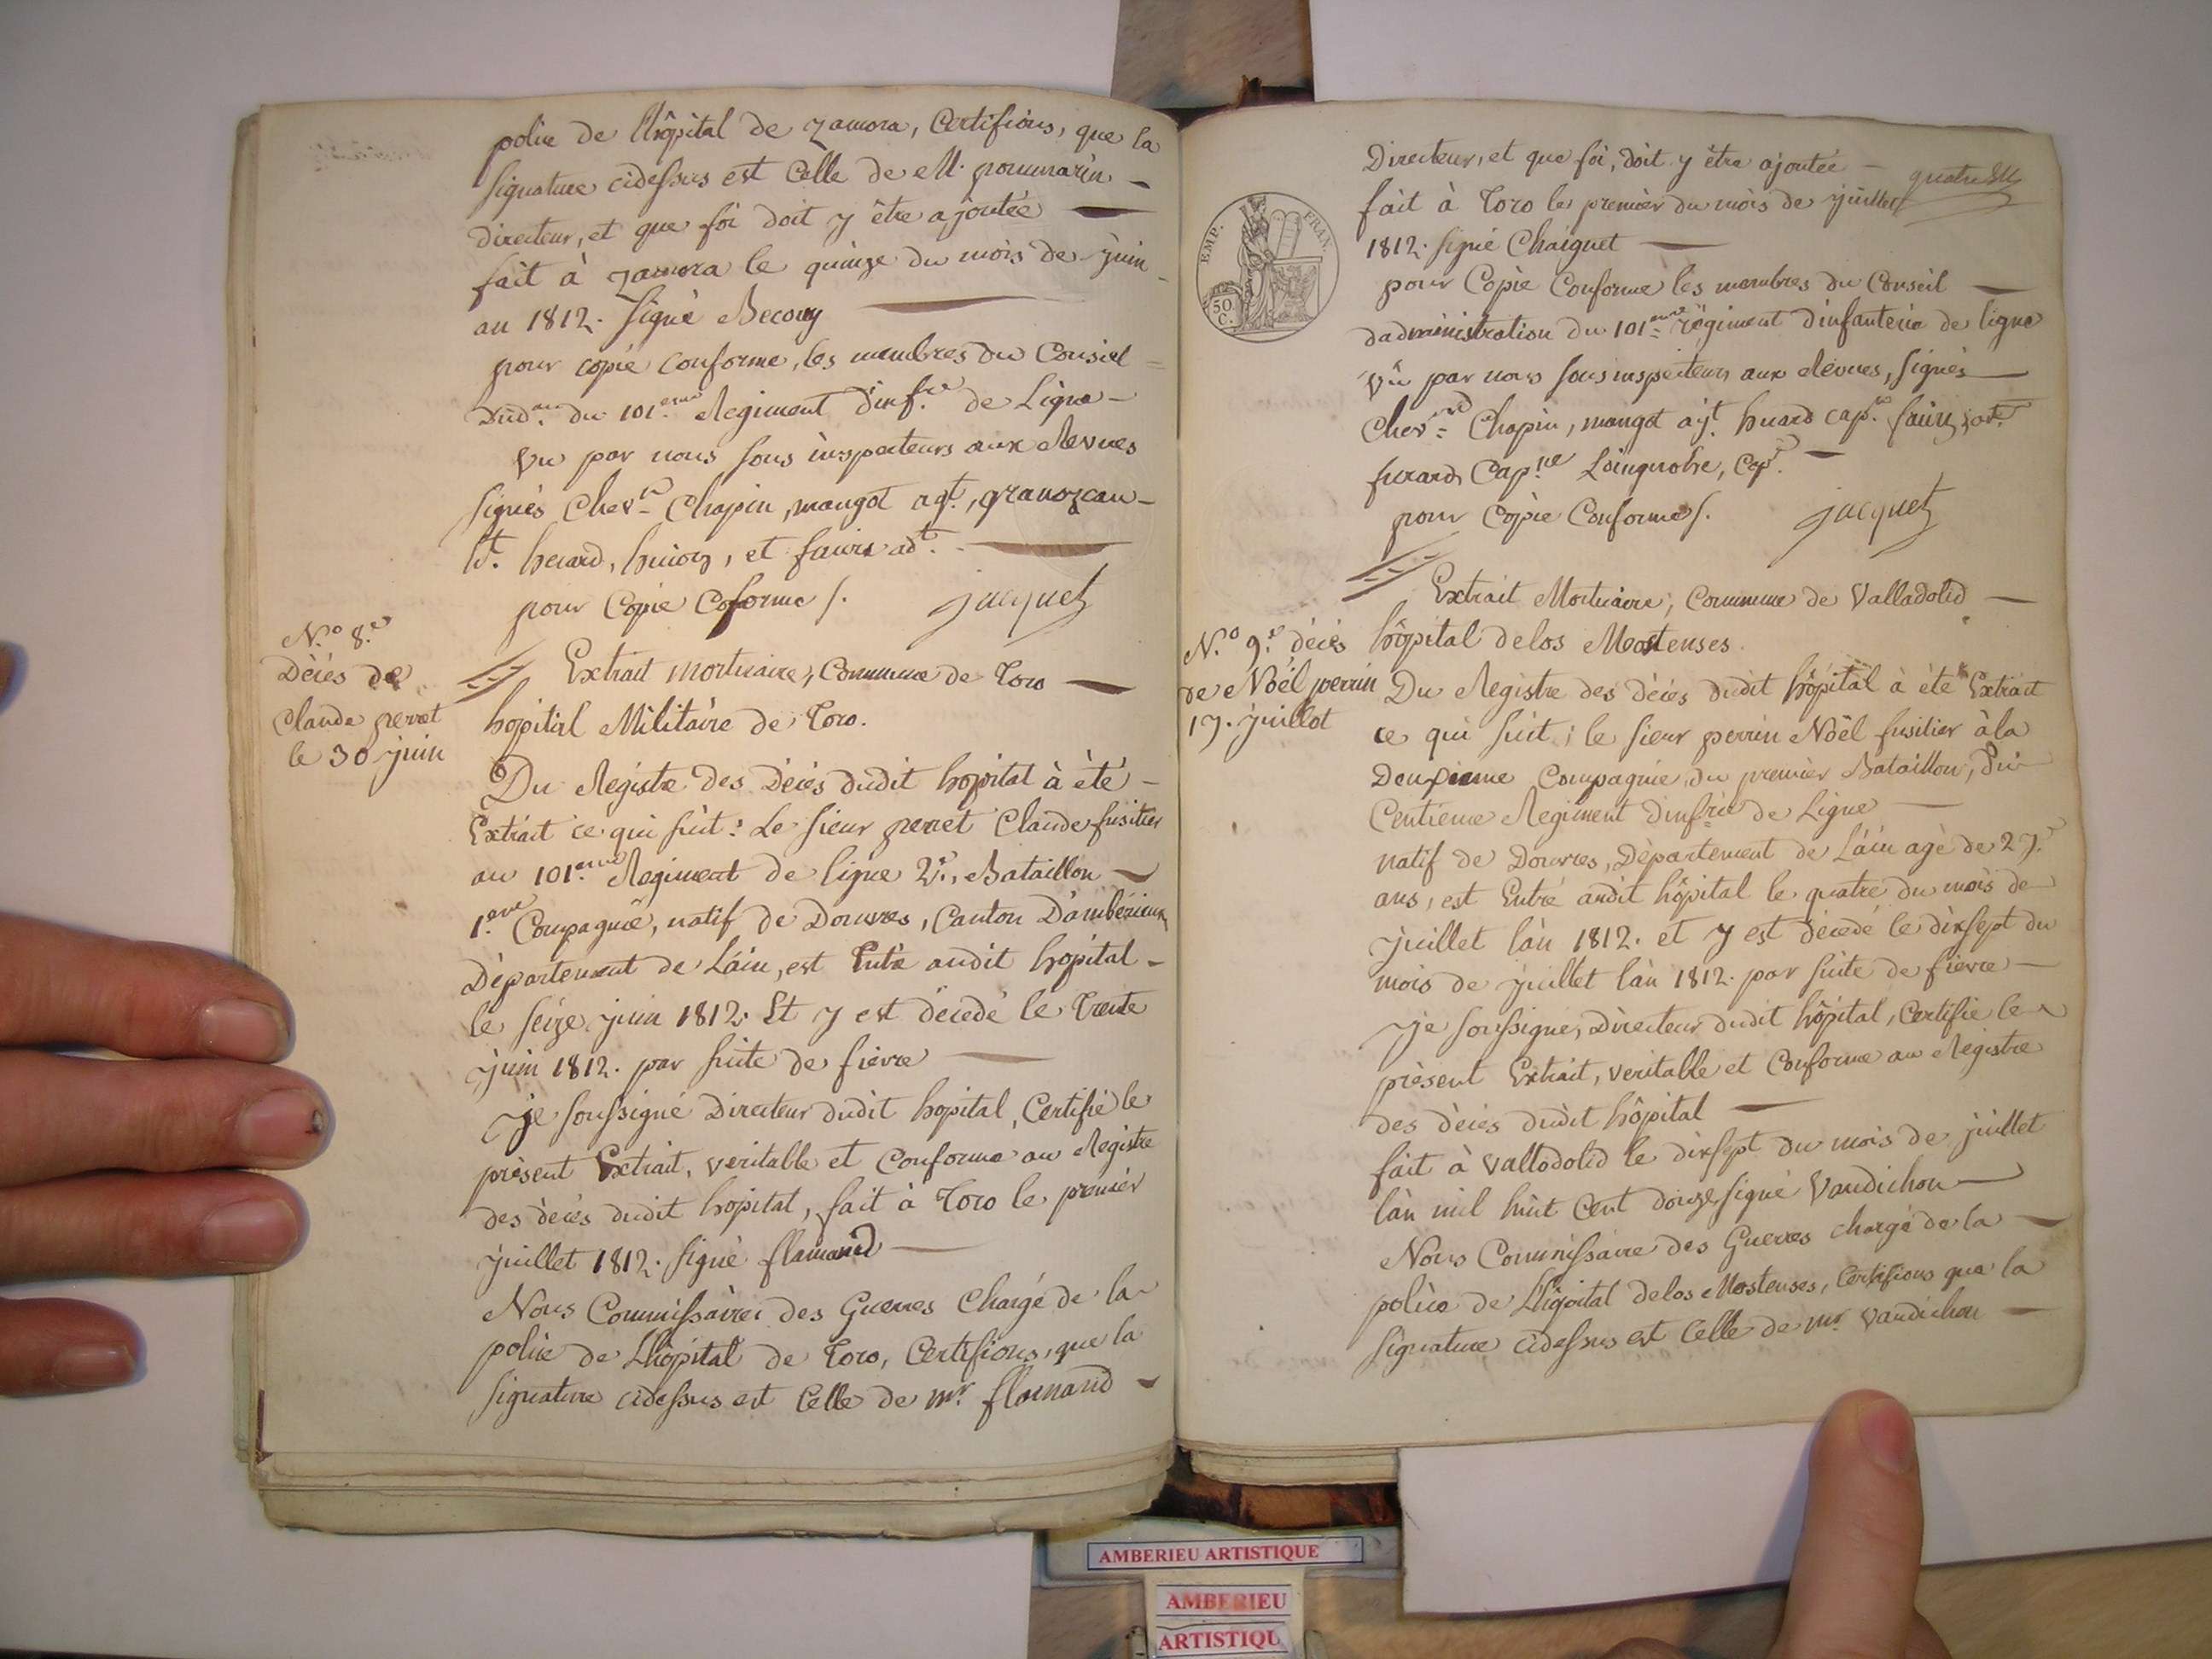 police de Lhôpital de Zamora, Certifions, que la
signature cidessus est Celle de M. pommarin
directeur, et que foi doit y être ajoutée
fait à Zamora le quinze du mois de juin
an 1812. Signé
pour copie conforme, les membres du Consiel
du 101.eme Regiment d'inf.rie de Ligne
Vu par nous sous inspecteurs aux Revues
signés Chev.r Chapin, mangot
et
pour Copie Coforme /. jacquet
N.o 8.e
Décés de
Claude perret
le 30 juin
Extrait mortuaire, Commune de Toro
hopital Militaire de Toro.
Du Registre des Décés dudit hopital à été
Extrait ce qui suit: Le sieur perret Claude fusilier
au 101.eme Regiment de ligne 2.e, Bataillon
1.ere Compagnie, natif de Douvres, Canton D'ambérieux
Département de Láin, est Entré audit hopital
le seize juin 1812. Et y est décedé le Trente
juin 1812. par suite de fièvre
je soussigné Directeur dudit hopital, Certifié le
présent Extrait, veritable et Conforme au Registre
des décés dudit hopital, fait à Toro le premier
juillet 1812. signé flamand
Nous Commissaires des Guerres Chargé de la
police de Lhôpital de Toro, Certifions, que la
signature cidessus est Celle de mr. flamand
Directeur, et que foi, doit y être ajoutée
fait à Toro le premier du mois de juillet
1812. signé Chaignet
pour Copie Conforme les membres du Conseil
dadministration du 101.eme régiment d'infanterie de ligne
Vû par nous sous inspecteurs aux Revues, signés
Chev.r Chapin, mangot ajt. huard cap.ne
Cap.ne Cap.
pour Copie Conforme /. jacquet
EMP. FRAN.
50 C.
Extrait Mortuaire, Commune de Valladolid
N.o 9.e décés
de Nöel perrin
17. juillet
hôpital delos Mostenses.
Du Registre des décés dudit hôpital à été Extrait
ce qui suit; le sieur perrin Nöel fusilier à la
Deuxieme Compagnie, du premier Bataillon, du
Centieme Regiment dinfrie de Ligne
natif de Douvres, Département de Láin agé de 27.
ans, est Entré audit hôpital le quatre du mois de
juillet làn 1812. et y est décedé le dixsept du
mois de juillet làn 1812. par suite de fievre
je soussigné, Directeur dudit hôpital, Certifie le
présent Extrait, veritable et Conforme au Registre
des décés dudit hôpital
fait à Valladolid le dixsept du mois de juillet
làn mil huit Cent douze signé Vaudichon
Nous Commissaire des Guerres chargé de la
police de Lhôpital delos Mostenses, Certifions que la
signature cidessus est Celle de mr. Vaudichon
AMBERIEU ARTISTIQUE
AMBERIEU
ARTISTIQU